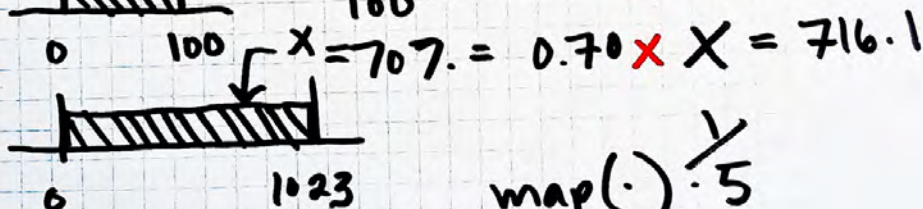 100
0 100 X = 70%. = 0.70 x X = 716.1
0 1023 map(·) 1/.5